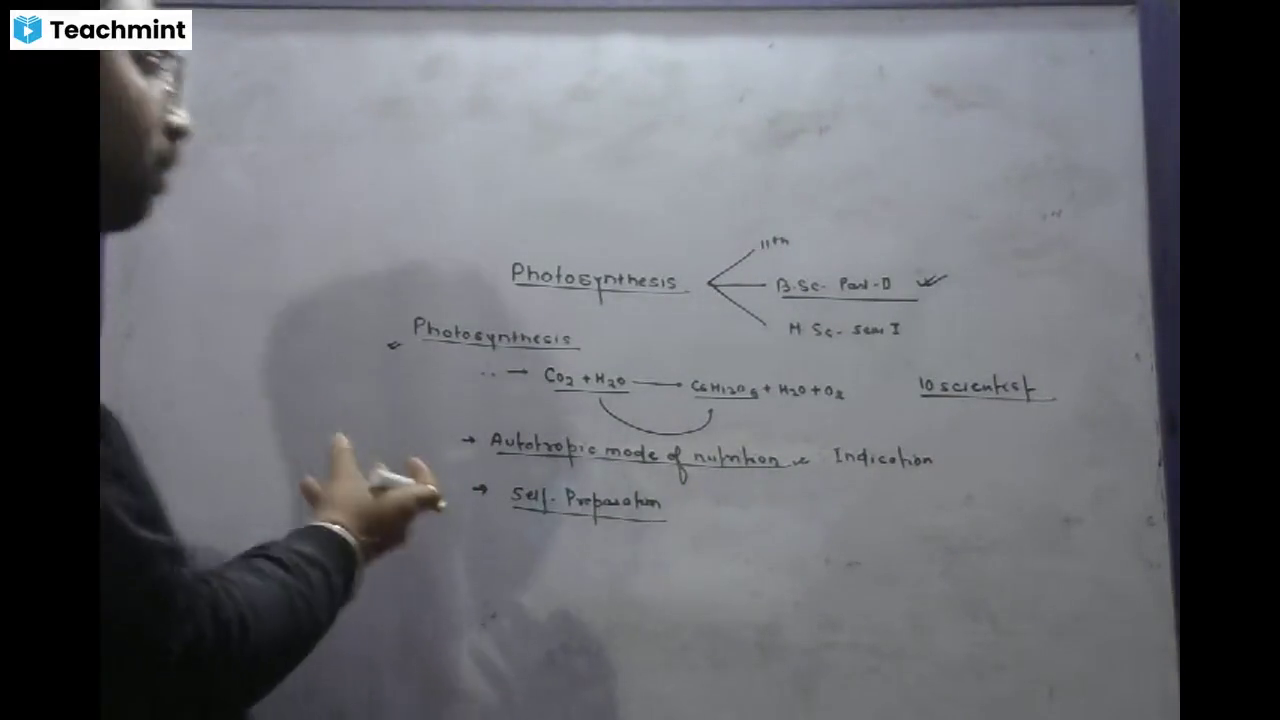 Teachmint
11th
Photosynthesis B.Sc- Part-D
M Sc- sem I
Photosynthesis
CO2 + H2O → C6H12O6 + H2O + O2 10 scientest
→ Autotropic mode of nutrition Indication
→ Self-Preparation